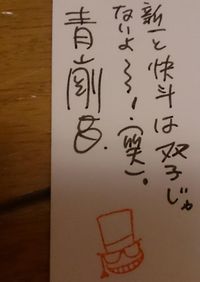 新一と快斗は双子じゃ
ないよ〜〜!(笑)。
青剛昌.